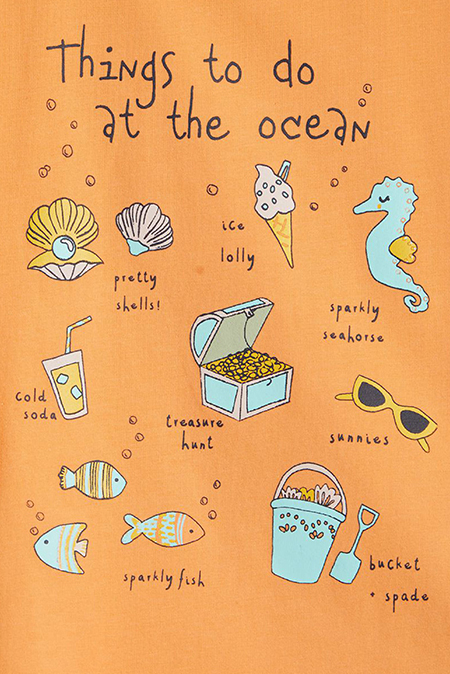 Things to do
at the ocean
pretty
shells!
ice
lolly
sparkly
seahorse
cold
soda
treasure
hunt
sunnies
sparkly fish
bucket
+ spade